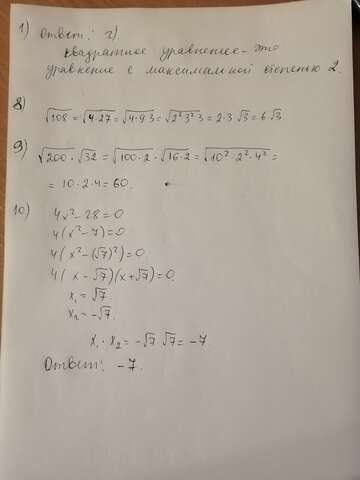 1) Ответ: г)
квадратное уравнение - это
уравнение с максимальной степенью 2.
8)
√108 = √4·27 = √4·9·3 = √2²3²3 = 2·3√3 = 6√3
9) √200 · √32 = √100·2 · √16·2 = √10²·2²·4² =
= 10·2·4 = 60.
10)
4x² - 28 = 0
4(x² - 7) = 0
4(x² - (√7)²) = 0
4(x - √7)(x + √7) = 0
x₁ = √7
x₂ = -√7.
x₁ · x₂ = -√7 √7 = -7
Ответ: -7.